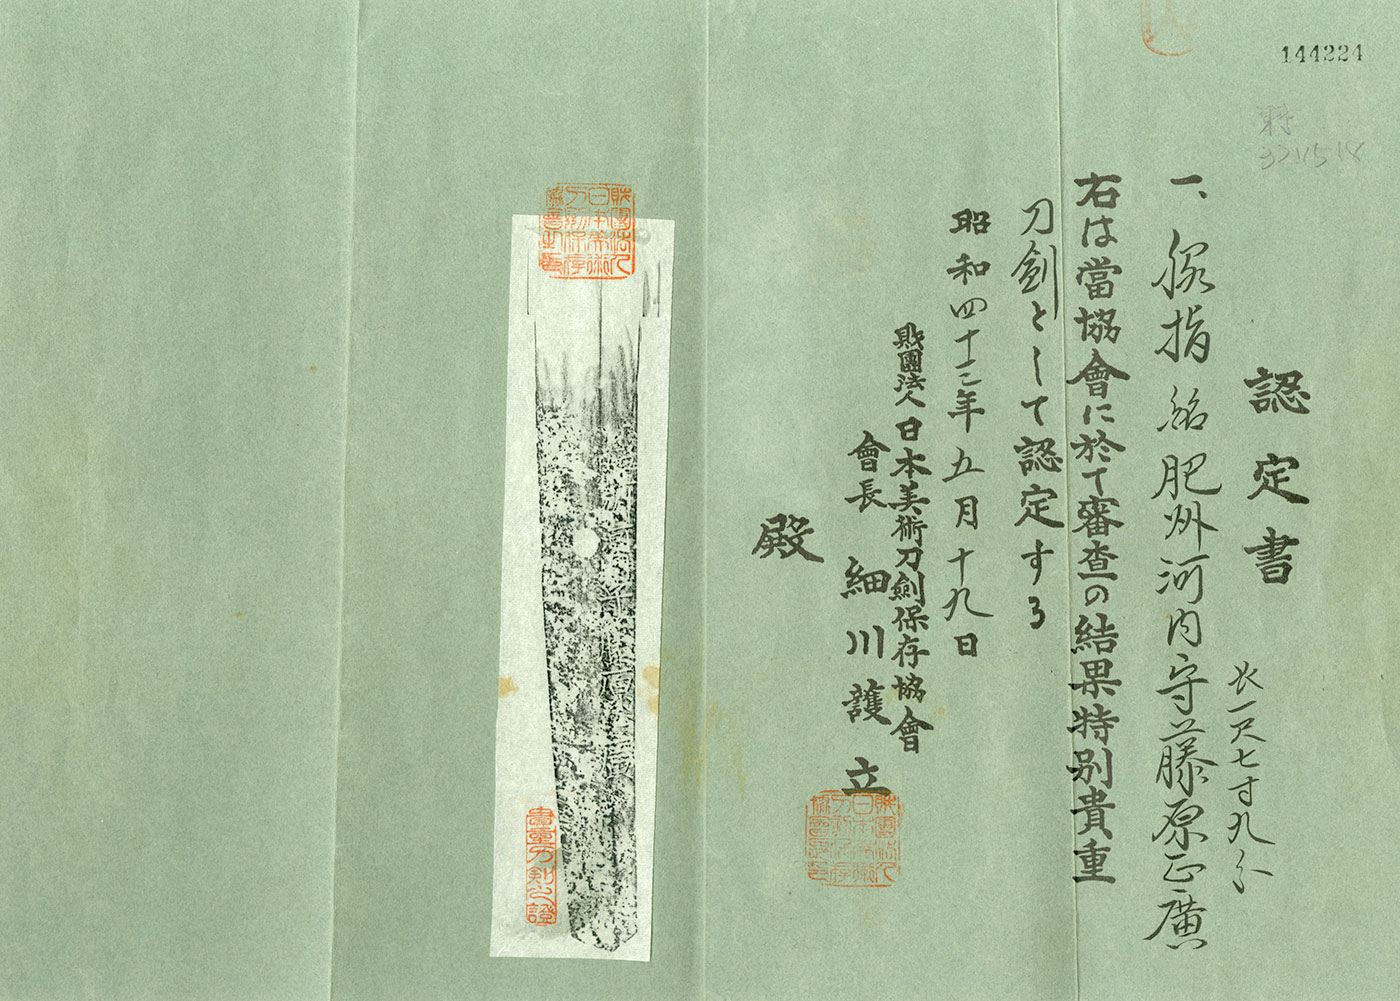 144224
認定書
一、脇指 銘 肥州河内守藤原正廣
長一尺七寸九分
右は當協會に於て審査の結果特別貴重
刀劍として認定する
昭和四十三年五月十九日
財團法人日本美術刀劍保存協會
會長 細川護立
殿
財團法人日本美術刀劍保存協會之印
貴重刀剣之證